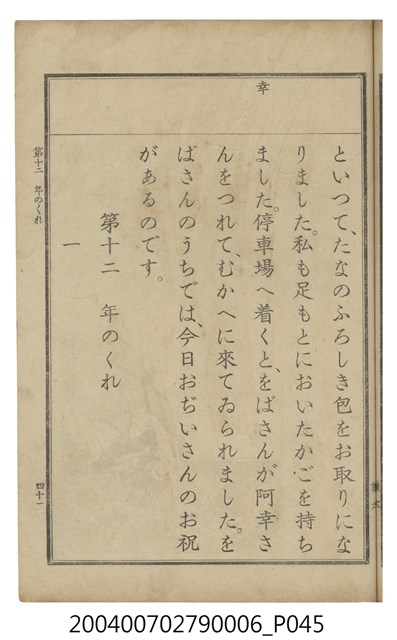 幸
といつて、たなのふろしき包をお取りにな
りました。私も足もとにおいたかごを持ち
ました。停車場へ着くと、をばさんが阿幸さ
んをつれて、むかへに來てゐられました。を
ばさんのうちでは、今日おぢいさんのお祝
があるのです。
第十二 年のくれ
一
第十二 年のくれ
四十一
200400702790006_P045